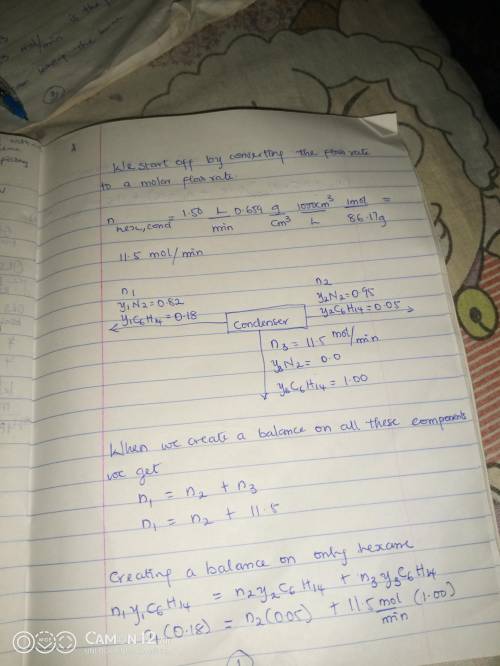 We start off by converting the flow rate
to a molar flow rate
n hex,cond = 1.50 L/min 0.659 g/cm³ 1000cm³/L 1mol/86.17g =
11.5 mol/min
n1
y1N2=0.82
y1C6H14=0.18
Condenser
n2
y2N2=0.95
y2C6H14=0.05
n3 = 11.5 mol/min
y3N2 = 0.0
y3C6H14 = 1.00
When we create a balance on all these components
we get
n1 = n2 + n3
n1 = n2 + 11.5
Creating a balance on only hexane
n1y1C6H14 = n2y2C6H14 + n3y3C6H14
(0.18) = n2(0.05) + 11.5 mol/min (1.00)
CAMON 12